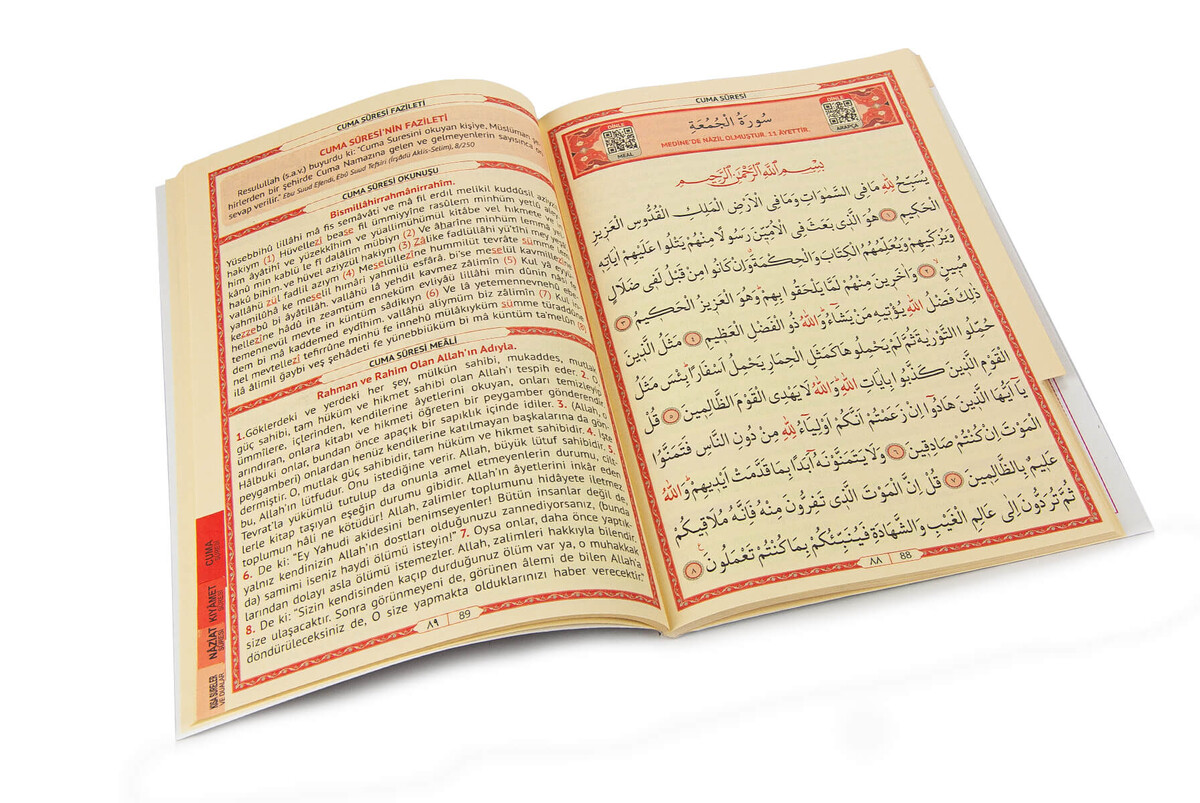 CUMA SÛRESİ
DİNLE
MEAL
سورة الجمعة
MEDİNE'DE NÂZİL OLMUŞTUR. 11 ÂYETTİR.
DİNLE
ARAPÇA
بِسْمِ اللّٰهِ الرَّحْمٰنِ الرَّحِيمِ
يُسَبِّحُ لِلّٰهِ مَا فِي السَّمٰوَاتِ وَمَا فِي الْاَرْضِ الْمَلِكِ الْقُدُّوسِ الْعَزِيزِ
الْحَكِيمِ ١ هُوَ الَّذِي بَعَثَ فِي الْاُمِّيِّنَ رَسُولًا مِنْهُمْ يَتْلُوا عَلَيْهِمْ اٰيَاتِهِ
وَيُزَكِّيهِمْ وَيُعَلِّمُهُمُ الْكِتَابَ وَالْحِكْمَةَ وَاِنْ كَانُوا مِنْ قَبْلُ لَفِي ضَلَالٍ
مُبِينٍ ٢ وَاٰخَرِينَ مِنْهُمْ لَمَّا يَلْحَقُوا بِهِمْ وَهُوَ الْعَزِيزُ الْحَكِيمُ ٣
ذٰلِكَ فَضْلُ اللّٰهِ يُؤْتِيهِ مَنْ يَشَاءُ وَاللّٰهُ ذُو الْفَضْلِ الْعَظِيمِ ٤ مَثَلُ الَّذِينَ
حُمِّلُوا التَّوْرٰيةَ ثُمَّ لَمْ يَحْمِلُوهَا كَمَثَلِ الْحِمَارِ يَحْمِلُ اَسْفَارًا بِئْسَ مَثَلُ
الْقَوْمِ الَّذِينَ كَذَّبُوا بِاٰيَاتِ اللّٰهِ وَاللّٰهُ لَا يَهْدِي الْقَوْمَ الظَّالِمِينَ ٥ قُلْ
يَا اَيُّهَا الَّذِينَ هَادُوا اِنْ زَعَمْتُمْ اَنَّكُمْ اَوْلِيَاءُ لِلّٰهِ مِنْ دُونِ النَّاسِ فَتَمَنَّوُا
الْمَوْتَ اِنْ كُنْتُمْ صَادِقِينَ ٦ وَلَا يَتَمَنَّوْنَهُ اَبَدًا بِمَا قَدَّمَتْ اَيْدِيهِمْ وَاللّٰهُ
عَلِيمٌ بِالظَّالِمِينَ ٧ قُلْ اِنَّ الْمَوْتَ الَّذِي تَفِرُّونَ مِنْهُ فَاِنَّهُ مُلَاقِيكُمْ
ثُمَّ تُرَدُّونَ اِلٰى عَالِمِ الْغَيْبِ وَالشَّهَادَةِ فَيُنَبِّئُكُمْ بِمَا كُنْتُمْ تَعْمَلُونَ ٨
٨٨ 88
CUMA SÛRESİ FAZİLETİ
CUMA SÛRESİ'NİN FAZİLETİ
Resulullah (s.a.v.) buyurdu ki: "Cuma Suresini okuyan kişiye, Müslüman şe-
hirlerden bir şehirde Cuma Namazına gelen ve gelmeyenlerin sayısınca
sevap verilir." Ebu Suud Efendi, Ebû Suud Tefsiri (İrşâdü Aklis-Selim), 8/250
CUMA SÛRESİ OKUNUŞU
Bismillâhirrahmânirrahîm.
Yüsebbihû lillâhi mâ fis semâvâti ve mâ fil erdil melikil kuddûsil aziyzil
hakiym (1) Hüvellezî bease fil ümmiyyîne rasûlem minhüm yetlû aley-
him âyâtihî ve yüzekkîhim ve yüallimühümül kitâbe vel hıkmete ve in
kânû min kablü le fî dalâlim mübiyn (2) Ve âharine minhüm lemmâ yel-
hakû bihim. ve hüvel aziyzül hakiym (3) Zâlike fadlüllâhi yü'tîhi mey yeşâ'
vallâhü zül fadlil azıym (4) Meselüllezîne hummilüt tevrâte sümme lem
yahmilûhâ ke meselil hımâri yahmilü esfârâ. bi'se meselül kavmillezîne
kezzebû bi âyâtillâh. vallâhü lâ yehdil kavmez zâlimîn (5) Kul yâ eyyü-
hellezîne hâdû in zeamtüm enneküm evliyâü lillâhi min dûnin nâsi fe
temennevül mevte in küntüm sâdikıyn (6) Ve lâ yetemennevnehû ebe-
dem bi mâ kaddemed eydîhim. vallâhü aliymüm biz zâlimîn (7) Kul in-
nel mevtellezî tefirrûne minhü fe innehû mülâkıyküm sümme türaddûne
ilâ âlimil ğaybi veş şehâdeti fe yünebbiüküm bi mâ küntüm ta'melûn (8)
CUMA SÛRESİ MEÂLİ
Rahman ve Rahim Olan Allah'ın Adıyla.
1.Göklerdeki ve yerdeki her şey, mülkün sahibi, mukaddes, mutlak
güç sahibi, tam hüküm ve hikmet sahibi olan Allah'ı tespih eder. 2. O
ümmîlere, içlerinden, kendilerine âyetlerini okuyan, onları temizleyip
arındıran, onlara kitabı ve hikmeti öğreten bir peygamber gönderendir.
Hâlbuki onlar, bundan önce apaçık bir sapıklık içinde idiler. 3. (Allah, o
peygamberi) onlardan henüz kendilerine katılmayan başkalarına da gön-
dermiştir. O, mutlak güç sahibidir, tam hüküm ve hikmet sahibidir. 4. İşte
bu, Allah'ın lütfudur. Onu istediğine verir. Allah, büyük lütuf sahibidir. 5.
Tevrat'la yükümlü tutulup da onunla amel etmeyenlerin durumu, cilt-
lerle kitap taşıyan eşeğin durumu gibidir. Allah'ın âyetlerini inkâr eden
toplumun hâli ne kötüdür! Allah, zalimler toplumunu hidâyete iletmez.
6. De ki: "Ey Yahudi akidesini benimseyenler! Bütün insanlar değil de,
yalnız kendinizin Allah'ın dostları olduğunuzu zannediyorsanız, (bunda
da) samimi iseniz haydi ölümü isteyin!" 7. Oysa onlar, daha önce yaptık-
larından dolayı asla ölümü istemezler. Allah, zalimleri hakkıyla bilendir.
8. De ki: "Sizin kendisinden kaçıp durduğunuz ölüm var ya, o muhakkak
size ulaşacaktır. Sonra görünmeyeni de, görünen âlemi de bilen Allah'a
döndürüleceksiniz de, O size yapmakta olduklarınızı haber verecektir."
٨٩ 89
CUMA
SÛRESİ
KIYÂMET
SÛRESİ
NÂZİAT
SÛRESİ
KISA SURELER
VE DUALAR